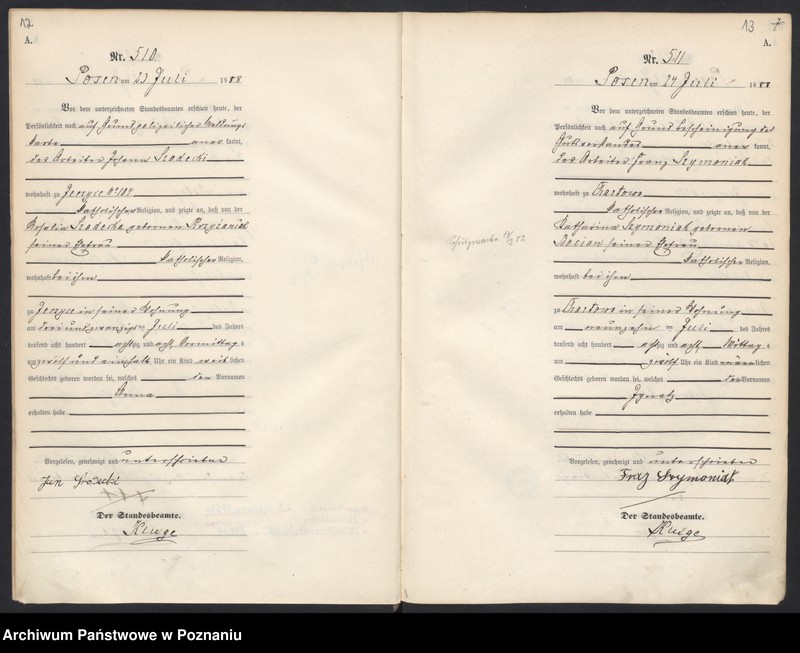 12
A.
Nr. 510
Posen am 23 Juli 1888
Vor dem unterzeichneten Standesbeamten erschien heute, der
Persönlichkeit nach auf Grund polizeilicher Meldungs
karte kannt,
der Arbeiter Johann Sradecki
wohnhaft zu Jerzyce No 104
katholischer Religion, und zeigte an, daß von der
Rosalia Sradecka geborenen
seiner Ehefrau
katholischer Religion,
wohnhaft bei ihm
zu Jerzyce in seiner Wohnung
am drei und zwanzigsten Juli des Jahres
tausend acht hundert achtzig und acht Vormittags
um zwölf und einhalb Uhr ein Kind weiblichen
Geschlechts geboren worden sei, welches den Vornamen
Anna
erhalten habe
Vorgelesen, genehmigt und unterschrieben
Jan
Der Standesbeamte.
Kluge
13
A.
Nr. 511
Posen am 24 Juli 1888
Vor dem unterzeichneten Standesbeamten erschien heute, der
Persönlichkeit nach auf Grund Bescheinigung des
Gutsvorstandes kannt,
der Arbeiter Franz Szymoniak
wohnhaft zu Chartowo
katholischer Religion, und zeigte an, daß von der
Katharina Szymoniak geborenen
Bocian seiner Ehefrau
katholischer Religion,
wohnhaft bei ihm
zu Chartowo in seiner Wohnung
am neunzehnten Juli des Jahres
tausend acht hundert achtzig und acht Mittags
um zwölf Uhr ein Kind männlichen
Geschlechts geboren worden sei, welches den Vornamen
Ignatz
erhalten habe
Vorgelesen, genehmigt und unterschrieben
Der Standesbeamte.
Kluge
Archiwum Państwowe w Poznaniu